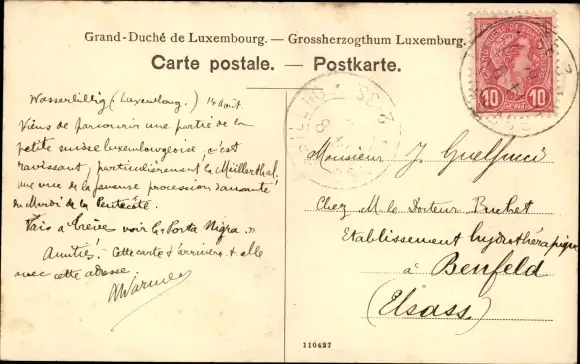 Grand-Duché de Luxembourg. — Grossherzogthum Luxemburg.
Carte postale. — Postkarte.
Wasserbillig (Luxembourg.) 14 août.
Viens de parcourir une partie de la
petite suisse luxembourgeoise. c'est
ravissant, particulièrement le Müllerthal.
une vue de la fameuse procession dansante
du Mardi de la Pentecôte.
Vais à Trèves voir la Porta Nigra.
Amitiés! Cette carte t'arrivera-t-elle
avec cette adresse
10 10
Monsieur J.
Chez M. le Docteur Buchet
Etablissement hydrothérapique
à Benfeld
(Elsass)
110427